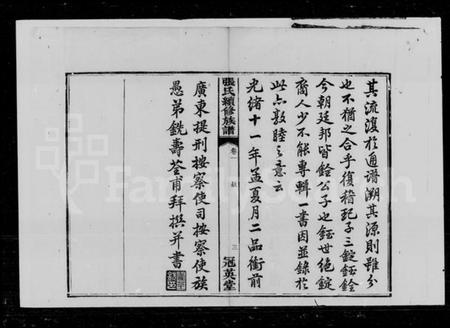 其流復於通譜溯其源則雖分
也不猶之合乎復稽玘子三錠鈺銓
今朝廷邦皆銓公子也鈺世絕錠
裔人少不能專輯一書因並錄於
此亦敦睦之意云
光緒十一年孟夏月二品銜前
張氏續修族譜
卷一
敘
三
冠英堂
廣東提刑按察使司按察使族
愚弟銑壽荃甫拜撰并書